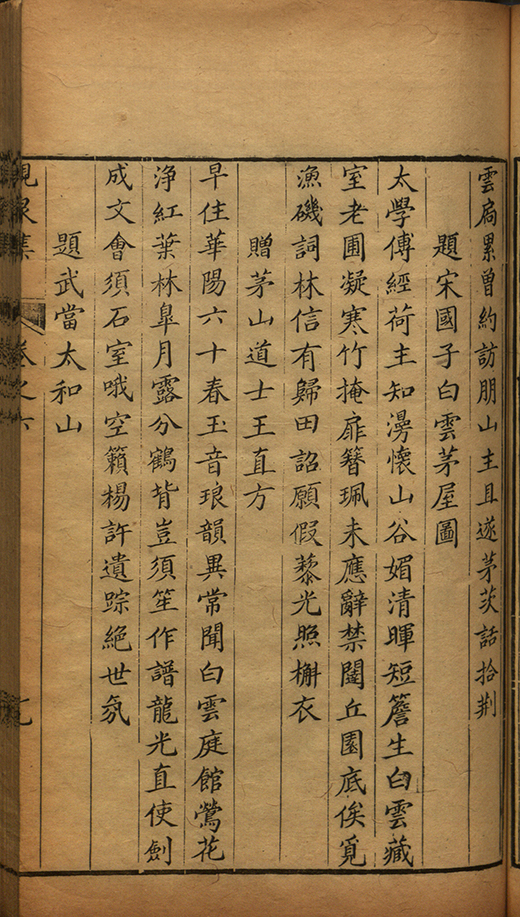 雲扃累曽約訪朋山主且遂茅茨話拾荆
題宋國子白雲茅屋圖
太學傅經荷主知漫懷山谷媚清暉短簷生白雲藏
室老圃凝寒竹掩扉簪珮未應辭禁闥丘園底俟覓
漁磯詞林信有歸田詔願假藜光照槲衣
贈茅山道士王直方
早住華陽六十春玉音琅韻異常聞白雲庭館鶯花
淨紅葉林皐月露分鶴背豈須笙作譜龍光直使劍
成文會須石室哦空籟楊許遺踪絕世氛
題武當太和山
峴泉集 卷之六